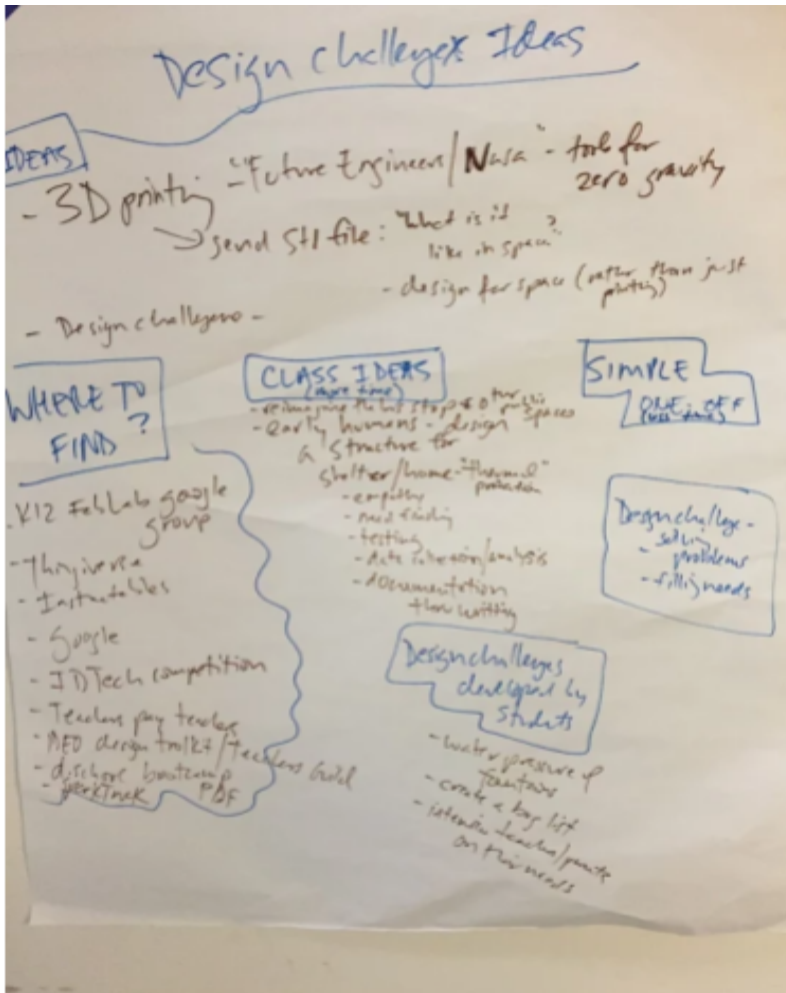 Design challenges Ideas
IDEAS
- 3D printing - "Future Engineers/Nasa" - tools for
zero gravity
→ send Stl file: "What is it
like in space"?
- design for space (rather than just
printing)
- Design challenges -
WHERE TO
FIND ?
- K12 FabLab google
group
- Thingiverse
- Instructables
- Google
- IDTech competition
- Teachers pay teachers
- design toolkit/Teachers Guild
- dschool bootcamp
PDF
CLASS IDEAS
(more time)
- reimagine the bus stop & other public spaces
- early humans - design
a structure for
shelther/home - "thermal"
protection
- empathy
- need finding
- testing
- data /analysis
- documentation
thru writting
SIMPLE
ONE-OFF
(less time)
Design challenge -
- solving
problems
- filling needs
Design challenges
developed by
Students
- water pressure of
fountains
- create a bug list
- teacher/parents
on their needs